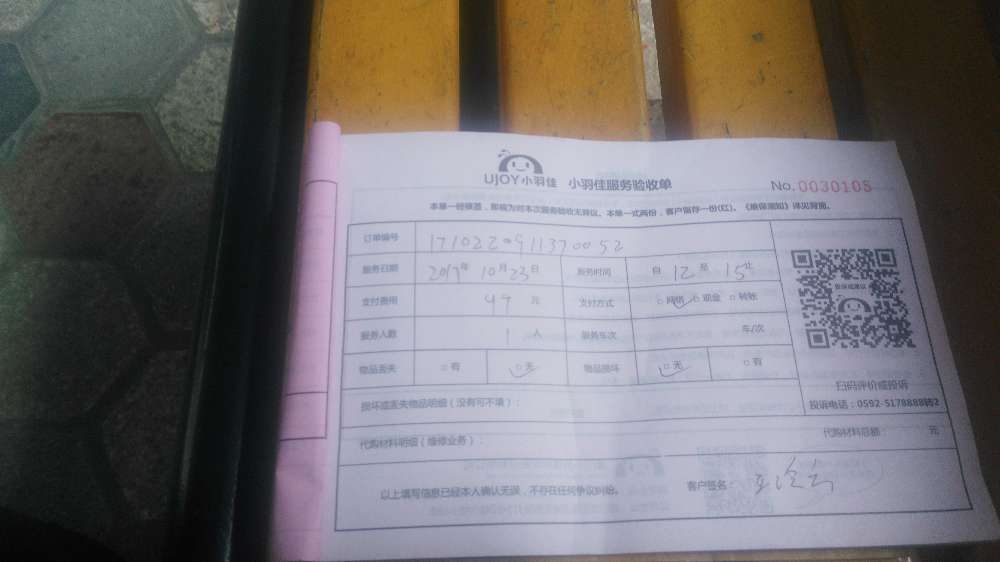 UJOY小羽佳 小羽佳服务验收单 No. 0030105
本单一经填签，即视为对本次服务验收无异议。本单一式两份，客户留存一份(红)。《维保须知》详见背面。
订单编号 1710220911370052
服务日期 2017年10月23日 服务时间 自12至15止
支付费用 49 元 支付方式 □网络 □现金 □转账
服务人数 1 人 服务车次 车/次
物品丢失 □有 □无 物品损坏 □无 □有
投诉或建议
扫码评价或投诉
投诉电话：0592-5178888转2
损坏或丢失物品明细（没有可不填）：
代购材料明细（维修业务）： 代购材料总额： 元
以上填写信息已经本人确认无误，不存在任何争议纠纷。 客户签名：